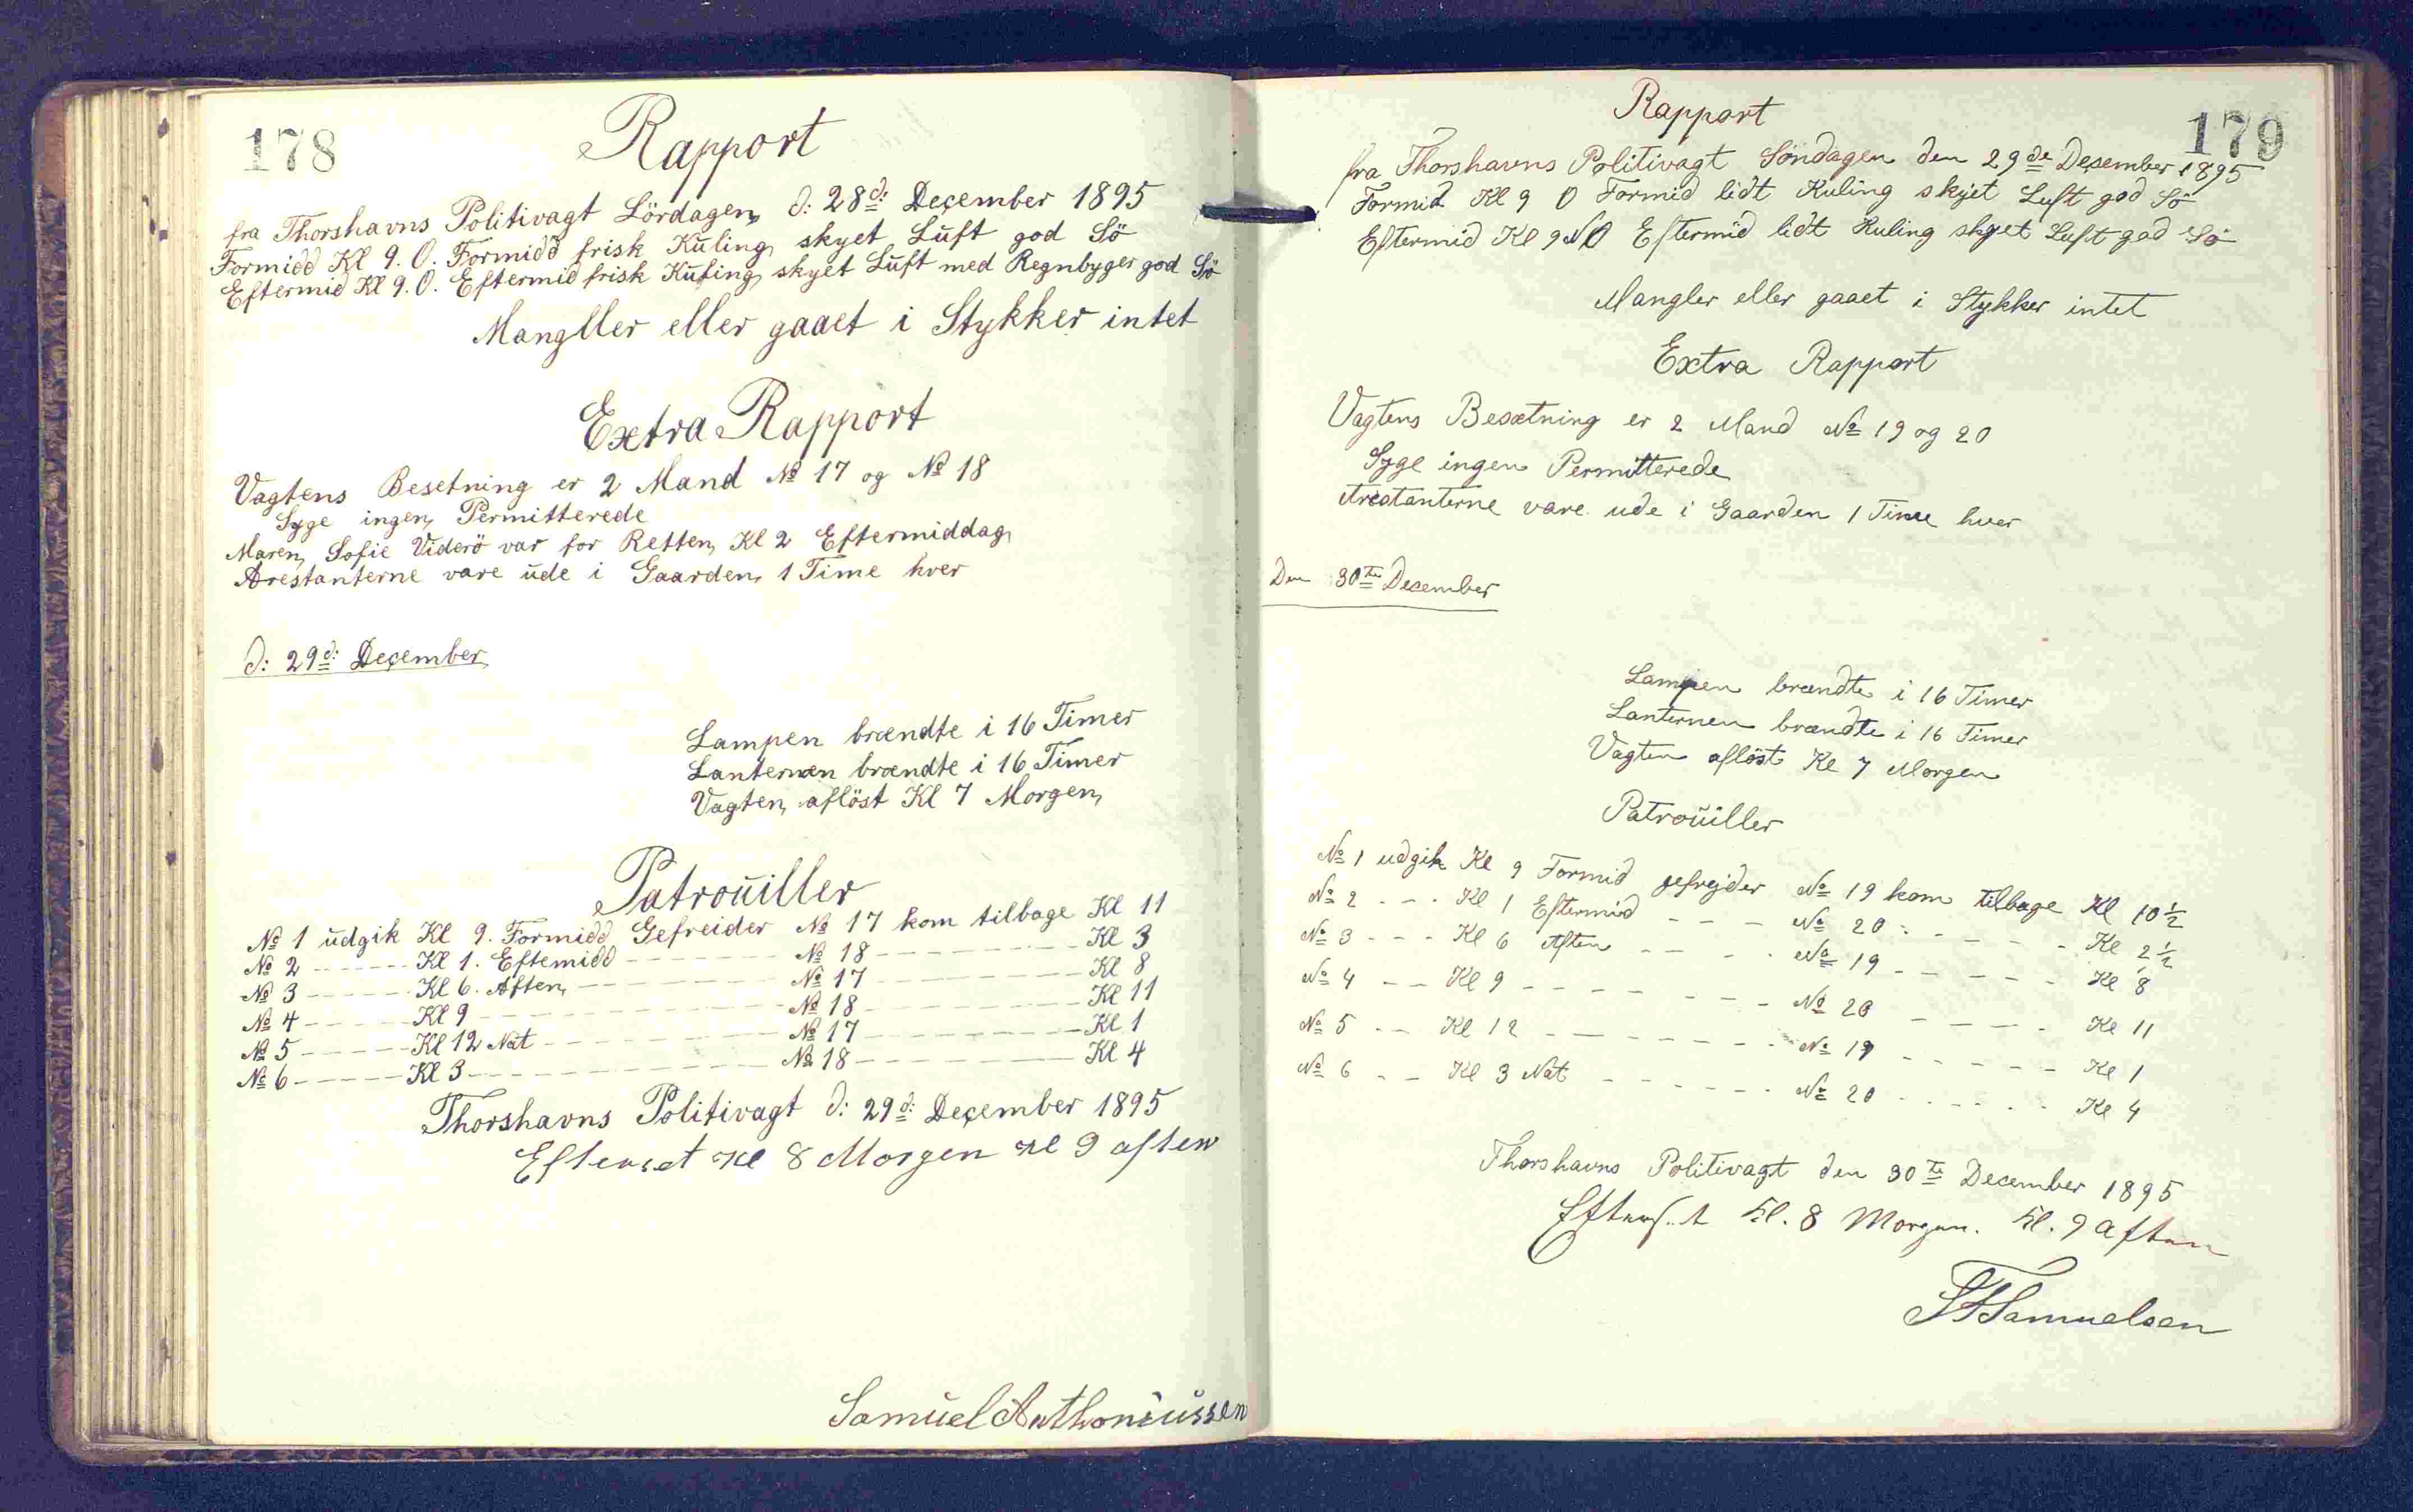 178
Rapport
fra Thorshavns Politivagt Lördagen d: 28d: December 1895
Formidd Kl 9. O. Formidd frisk Kuling skyet Luft god Sö
Eftermid Kl 9. O. Eftermid frisk Kuling skyet Luft med Regnbyger god Sö
Mangller eller gaaet i Stykker intet
Extra Rapport
Vagtens Besetning er 2 Mand No 17 og No 18
Syge ingen Permitterede
Maren Sofie Viderö var for Retten Kl 2 Eftermiddag
Arestanterne vare ude i Gaarden 1 Time hver
d: 29d: December
Lampen brændte i 16 Timer
Lanternen brændte i 16 Timer
Vagten aflöst Kl 7 Morgen
Patrouiller
No 1 udgik Kl 9. Formidd Gefreider No 17 kom tilbage Kl 11
No 2 - - - - - - Kl 1. Eftemidd - - - - - - No 18 - - - - - - Kl 3
No 3 - - - - - - Kl 6. Aften - - - - - - No 17 - - - - - - Kl 8
No 4 - - - - - - Kl 9 - - - - - - No 18 - - - - - - Kl 11
No 5 - - - - - - Kl 12 Nat - - - - - - No 17 - - - - - - Kl 1
No 6 - - - - - - Kl 3 - - - - - - No 18 - - - - - - Kl 4
Thorshavns Politivagt d: 29d: December 1895
Efterset Kl 8 Morgen Kl 9 aften
Samuel Anthoniussen
179
Rapport
fra Thorshavns Politivagt Söndagen den 29de December 1895
Formid Kl 9 O Formid lidt Kuling skyet Luft god Sö
Eftermid Kl 9 NO Eftermid lidt Kuling skyet Luft god Sö
Mangler eller gaaet i Stykker intet
Extra Rapport
Vagtens Besætning er 2 Mand No 19 og 20
Syge ingen Permitterede
Arestanterne vare ude i Gaarden 1 Time hver
Den 30te December
Lampen brændte i 16 Timer
Lanternen brændte i 16 Timer
Vagten aflöst Kl 7 Morgen
Patrouiller
No 1 udgik Kl 9 Formid gefrejder No 19 kom tilbage Kl 10 1/2
No 2 - - - Kl 1 Eftermid - - - No 20 - - - - - Kl 2 1/2
No 3 - - - Kl 6 Aften - - - - No 19 - - - - - Kl 8
No 4 - - Kl 9 - - - - - - - No 20 - - - - - Kl 11
No 5 - - Kl 12 - - - - - - - No 19 - - - - - Kl 1
No 6 - - Kl 3 Nat - - - - - - No 20 - - - - - Kl 4
Thorshavns Politivagt den 30te December 1895
Efterset Kl. 8 Morgen. Kl. 9 Aften
Samuelsen